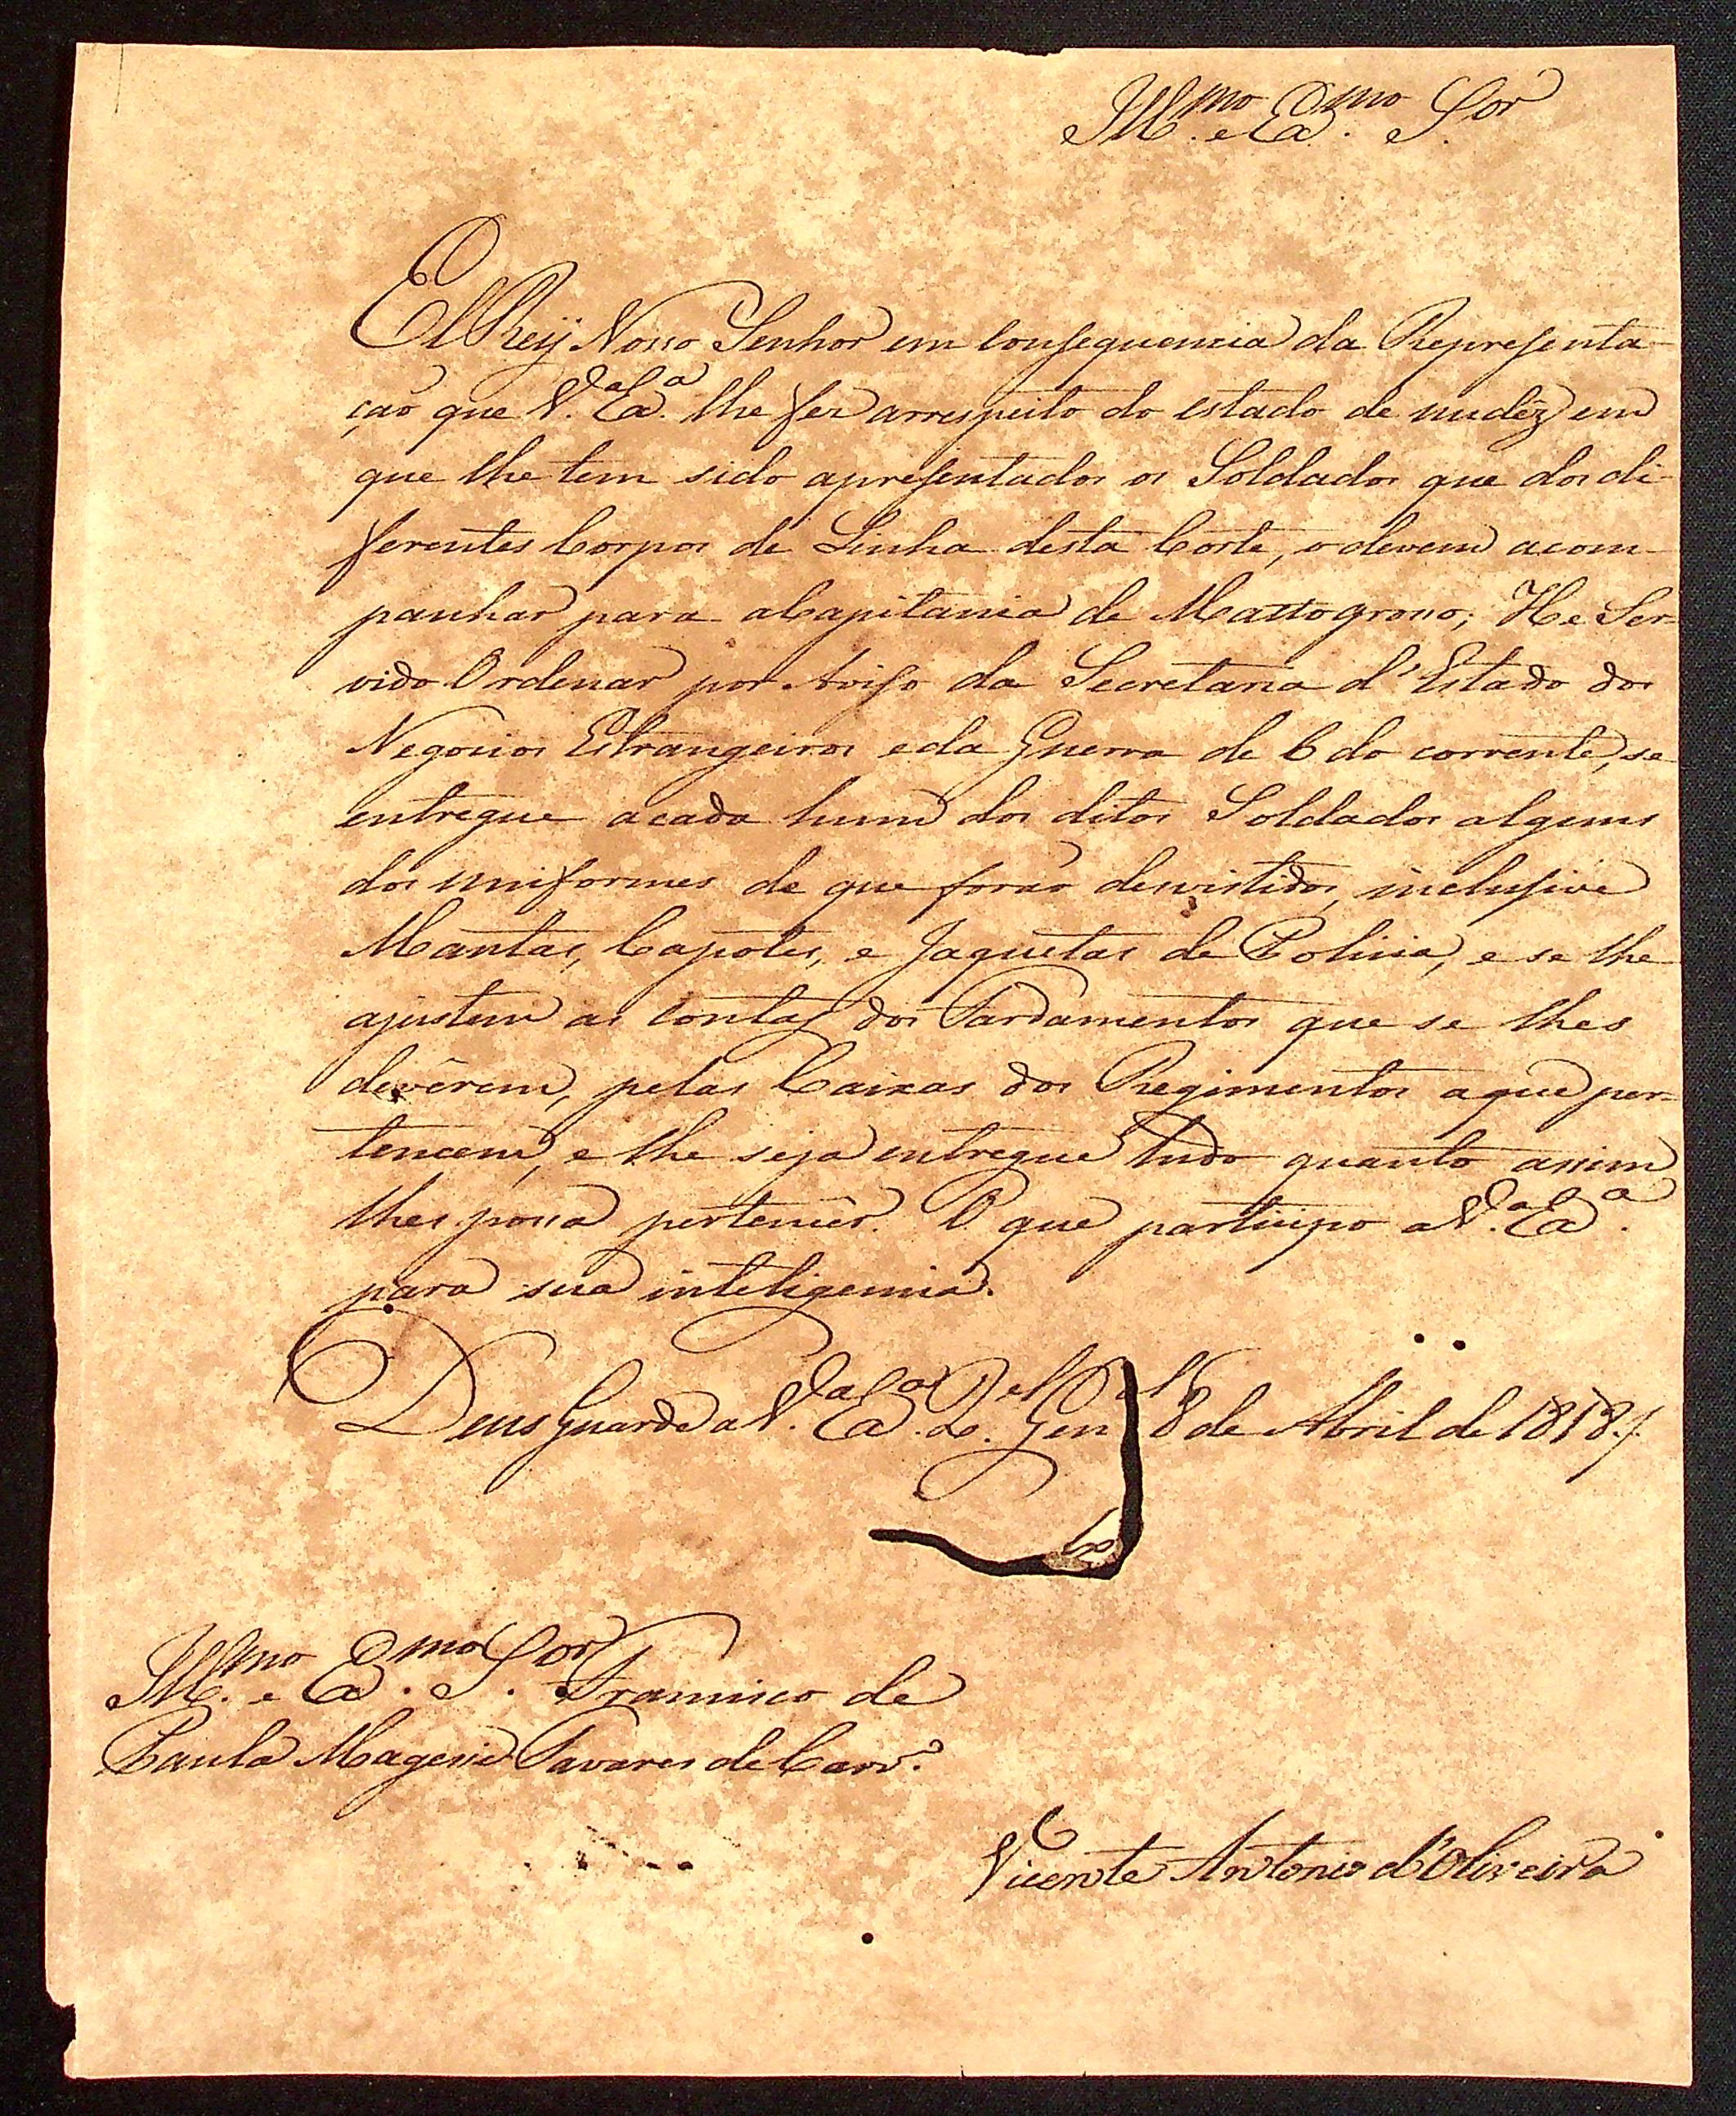 Ill.mo e Ex.mo S.or
ElRey Nosso Senhor em consequencia da Representa-
ção que V.a Ex.a lhe fez arrespeito do estado de nudêz em
que lhe tem sido apresentados os Soldados que dos di-
ferentes Corpos de Linha desta Côrte, o devem acom-
panhar para aCapitania de Mattogrosso; He Ser-
vido Ordenar por Aviso da Secretaria d'Estado dos
Negocios Estrangeiros eda Guerra de 6 do corrente, se
entregue acada hum dos ditos Soldados alguns
dos uniformes de que forão desvistidos, inclusive
Mantas, Capotes, e Jaquetas de Policia, e se lhe
ajustem as contas dos Fardamentos que se lhes
devêrem, pelas Caixas dos Regimentos aque per-
tencem, e lhe seja entregue tudo quanto assim
lhes possa pertencêr. O que participo aV.a Ex.a
para sua inteligencia.
Deus Guarde a V.a Ex.a Q.el Gen.al 8 de Abril de 1818./.
Ill.mo e Ex.mo S.or Francisco de
Paula Magessi Tavares de Carv.o
Vicente Antonio d'Oliveira